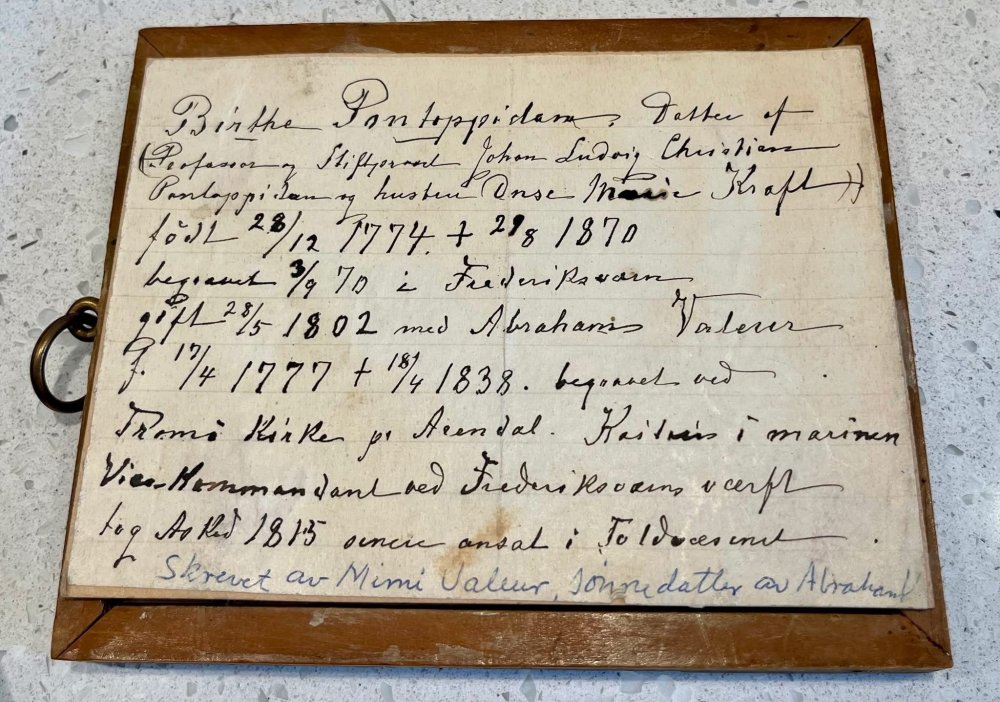 Birthe Pontoppidan, Datter af
(Professor og Stiftprovst Johan Ludvig Christian
Pontoppidan og hustru Marie Kraft))
född 28/12 1774. + 29/8 1870
begravet 3/9 70 i Frederiksværn
gift 28/5 1802 med Abraham Valeur
f. 17/4 1777 + 18/4 1838. begravet ved
Tromö Kirke pr Arendal. i marinen
Vice-Kommandant ved Frederiksværns værft
tog Asked 1815 senere ansat i Toldvæsenet.
Skrevet av Mimi Valeur, sønnedatter av Abraham